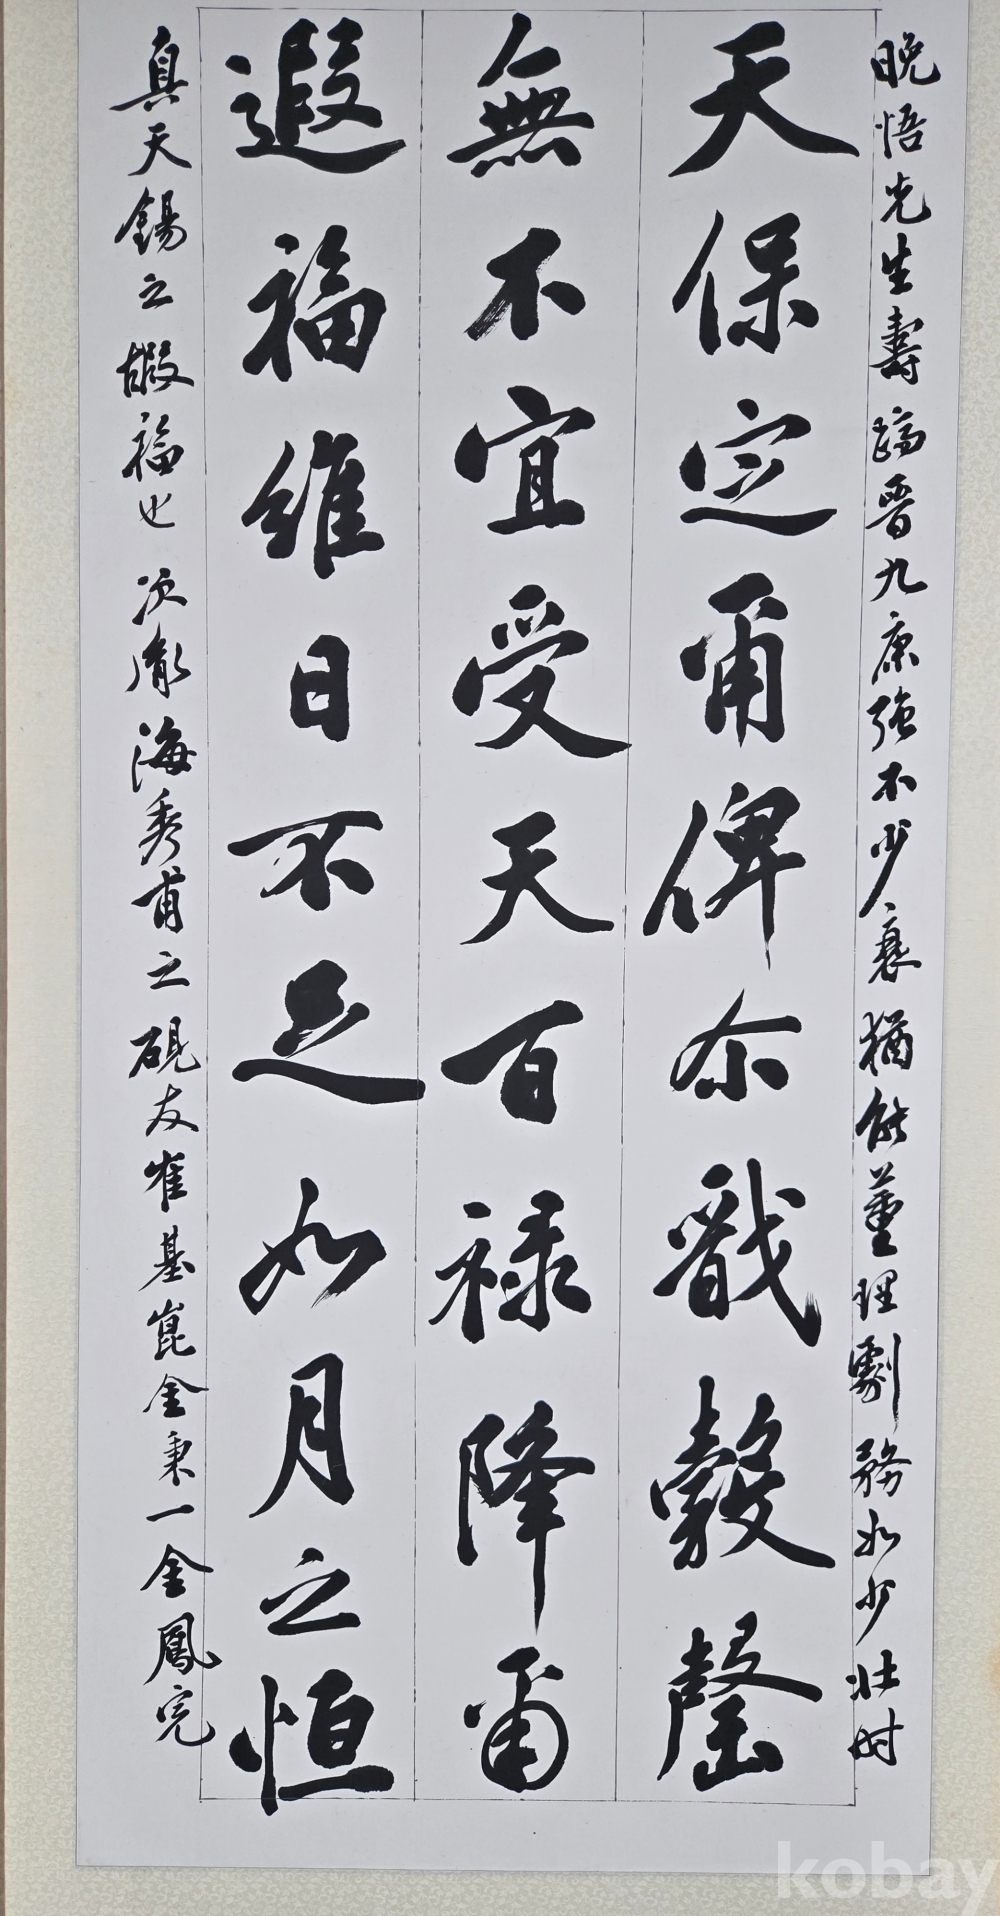 晩悟先生壽躋晉九康強不少衰猶能董理劇務如少壯时
天保定甭俾尒戩穀罄
無不宜受天百祿降甭
遐福維日不足如月之恒
真天錫之嘏福也 次胤海秀甫之硯友崔基崑金秉一金鳳完
kobay